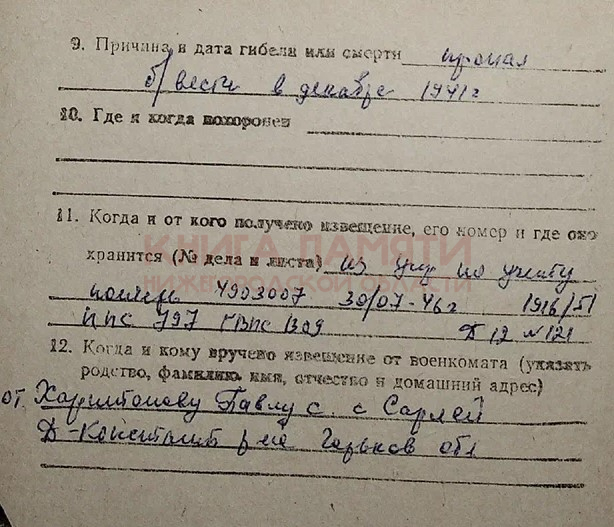 9. Причина и дата гибели или смерти пропал
б/вести в декабре 1941г
10. Где и когда похоронен
11. Когда и от кого получено извещение, его номер и где оно
хранится (№ дела и листа) из упр по учету
КНИГА ПАМЯТИ
НИЖЕГОРОДСКОЙ ОБЛАСТИ
4903007 30/07-46г 1916/51
ППС 797 Д 12 № 121
12. Когда и кому вручено извещение от военкомата (указать
родство, фамилию имя, отчество и домашний адрес)
от. Харитонову Павлу с. с Сарлей
Д-Констант р-на Горьков обл